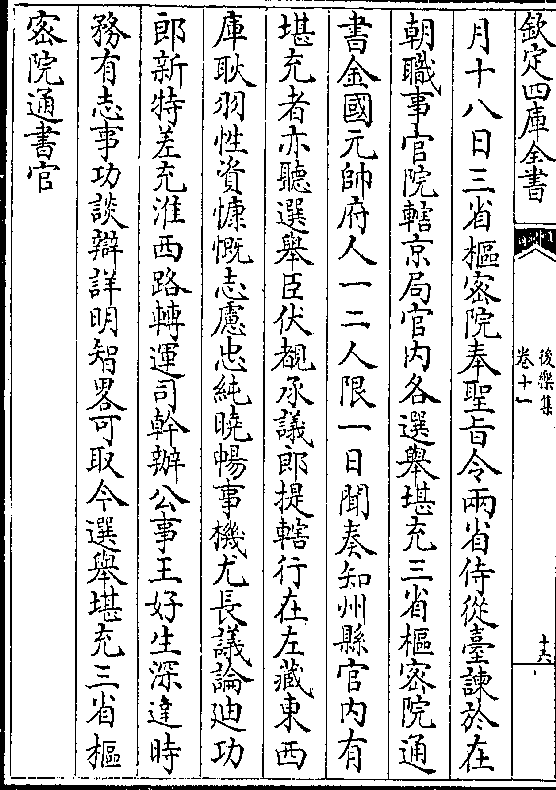 欽定四庫全書
後樂集
卷十一
十六
月十八日三省樞密院奉聖旨令兩省侍從臺諫於在
朝職事官院轄京局官内各選舉堪充三省樞密院通
書金國元帥府人一二人限一日聞奏知州縣官内有
堪充者亦聽選舉臣伏覩承議郎提轄行在左藏東西
庫耿羽性資慷慨志慮忠純曉暢事機尤長議論廸功
郎新特差充淮西路轉運司幹辦公事王好生深達時
務有志事功談辯詳明智畧可取今選舉堪充三省樞
密院通書官